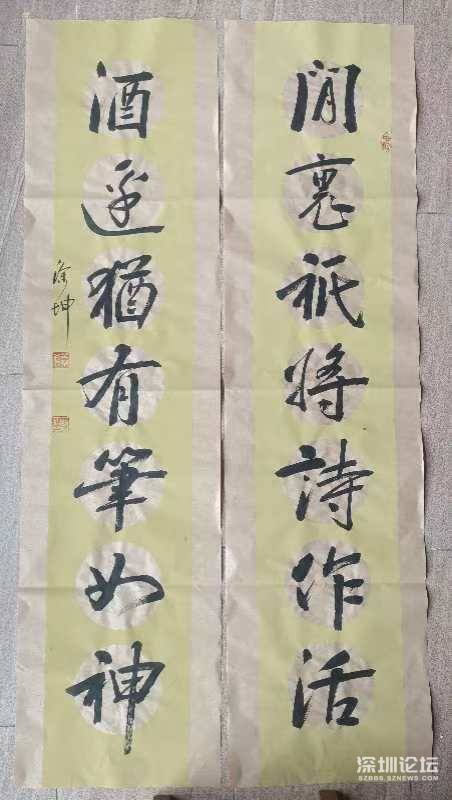 閒裏祇將詩作活
酒邊猶有筆如神
徐坤
深圳论坛
SZBBS.SZNEWS.COM